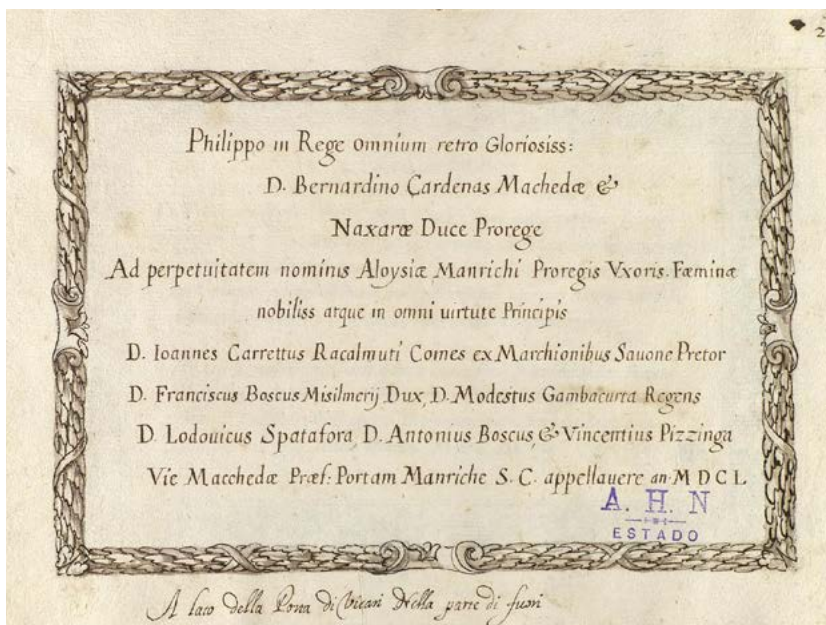 2
Philippo in Rege omnium retro Gloriosiss:
D. Bernardino Cardenas Machedæ &
Naxaræ Duce Prorege
Ad perpetuitatem nominis Aloysiæ Manrichi Proregis Vxoris. Fæminæ
nobiliss atque in omni uirtute Principis
D. Ioannes Carrettus Racalmuti Comes ex Marchionibus Sauone Pretor
D. Franciscus Boscus Misilmerij Dux, D. Modestus Gambacurta Regens
D. Lodouicus Spatafora, D. Antonius Boscus, & Vincentius Pizzinga
Vie Macchedæ Præf: Portam Manriche S. C. appellauere an. M D C L
A. H. N
ESTADO
A lato della Porta di Vicari Nella parte di fuori